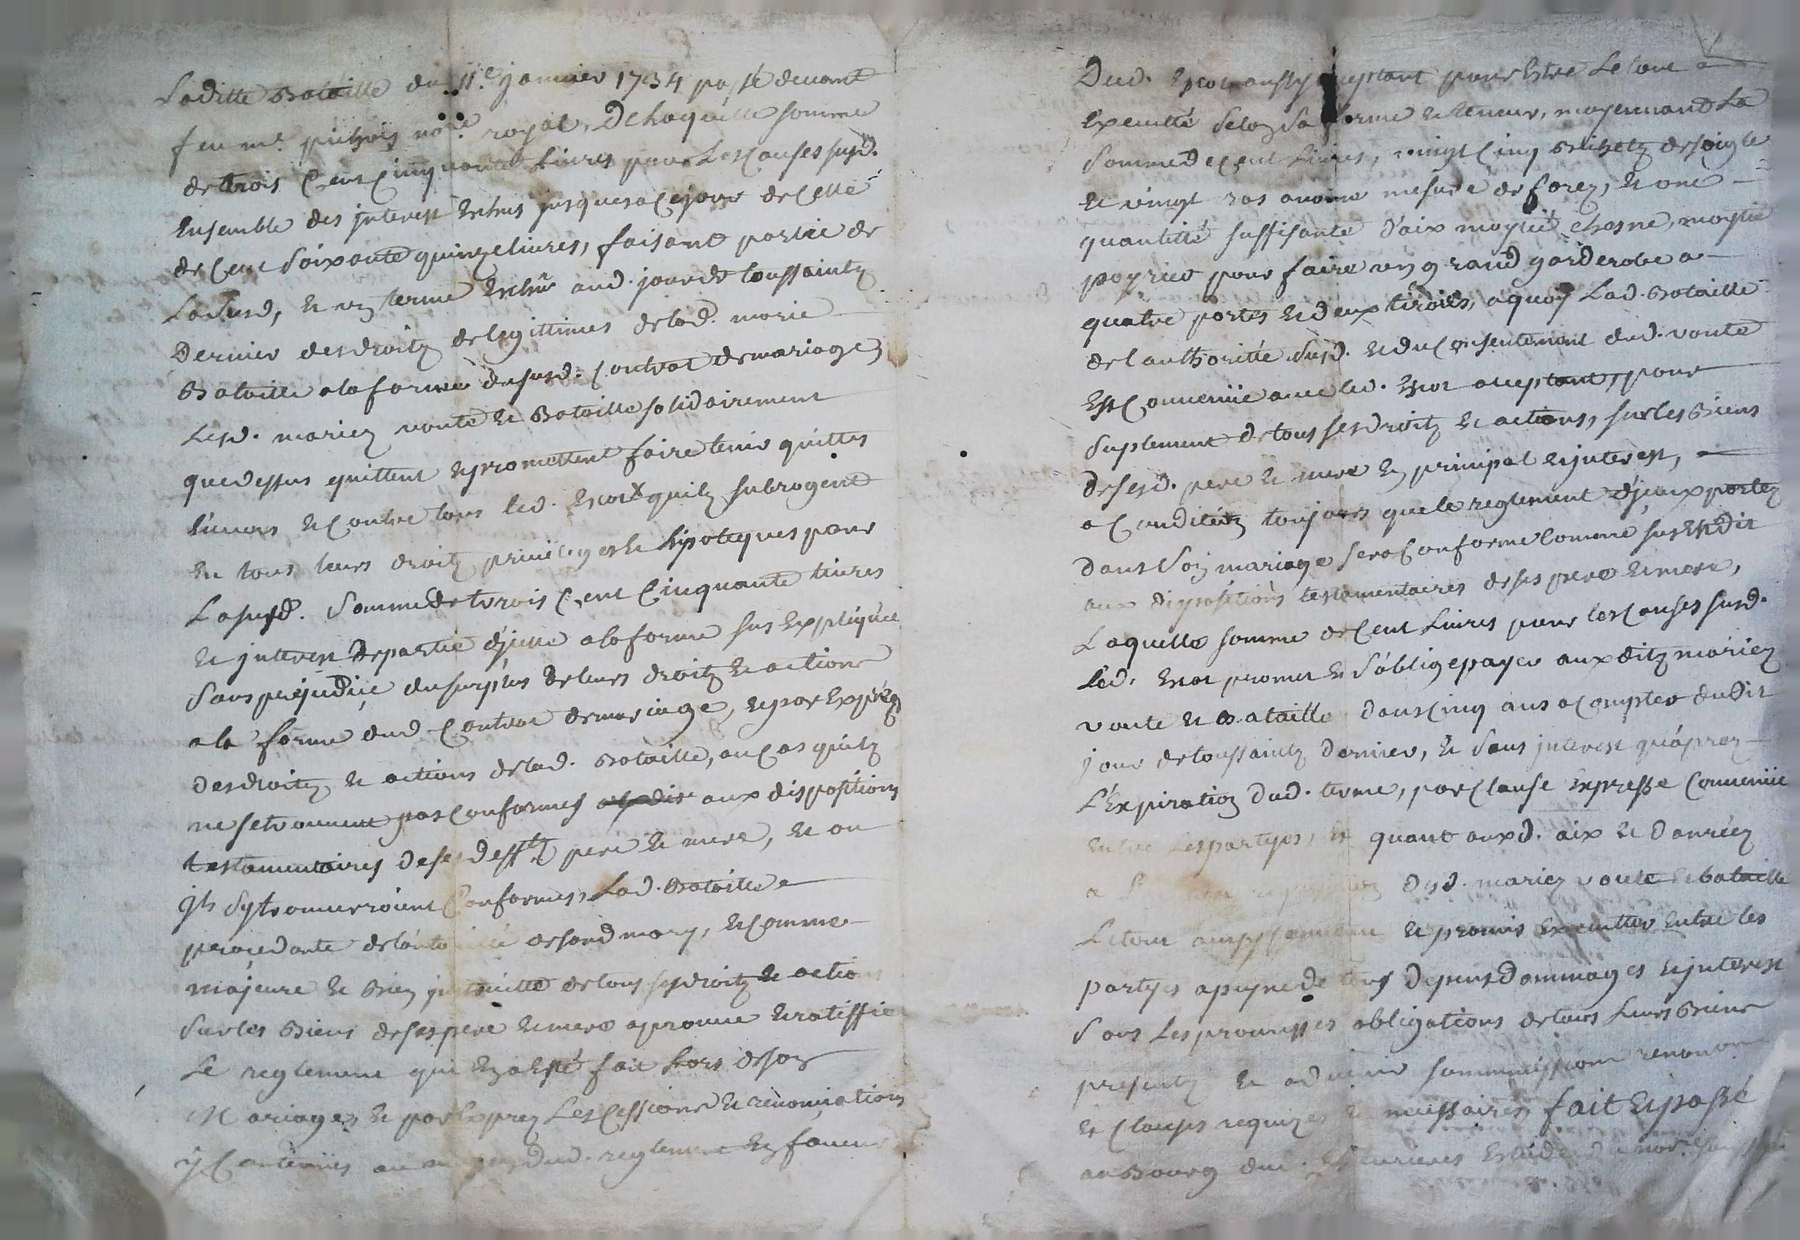 Laditte Bataille du 11e janvier 1734 passé devant
feu me. notre royal, De laquelle somme
de trois Cent Cinquante Livres pour Les Causes susd.
Ensemble des jnterest Echus jusques a Ce jour de Celle
de Cent Soixante quinze livres, faisant partie de
La Susd, et un terme Echu aud. jour de toussaintz
Dernier des droitz de legittimes de lad. marie
Bataille a la forme du susd. Contrat de mariage,
Lesd. mariez voute et Bataille solidairement
que dessus quittent et promettent faire tenir quittes
Envers et Contre tous led. Escot quilz subrogent
En tous leurs droitz privileges et hipoteques pour
La susd. Somme de trois Cent Cinquante livres
et jnterest De partie d'jcelle a la forme sus Expliquée
Sans préjudice du surplus de leurs droitz et actions
a la forme dud Contrat de mariage, et par Exprez
des droitz et actions de lad. Bataille, au Cas quilz
ne se trouvent pas conformes aux dispositions
testamentaires de ses pere et mere, et ou
jls sy trouverroient Conformes, Lad. Bataille
procedante de l'autorité de sond mary, et Comme
majeure et Bien justruitte de tous ses droitz et actions
Sur les Biens de ses pere et mere aprouve et ratiffie
Le reglement qui En a esté fait hors de son
Mariage, et par Exprez Les Cessions et renonciations
y Contenües au dud. reglement En faveur
Dud. Escot aussy aceptant pour Estre Le tout
Executté Selon Sa forme et teneur, moyennant La
Somme de Cent Livres, vingt Cinq Bichetz de soigle
et vingt ras avoine mesure de forez, et une
quantitté suffisante d'aix moytié chasne, moytié
poyrier pour faire un grand garderobe a
quatre portes et deux tiroirs, a quoy Lad. Bataille
de l'authoritée susd. et du Consentement dud. voute
Est Convenüe avec led. Escot aceptant, pour
Suplement de tous ses droitz et actions, sur les Biens
de sesd. pere et mere En principal et jnterest,
a Condition toujours que le reglement d'jceux portez
dans Son mariage sera Conforme Comme sus Est dit
aux disposétions testamentaires de ses pere et mere,
Laquelle somme de Cent Livres pour les Causes susd.
Led. Escot promet et S'oblige payer aux ditz mariez
voute et Bataille dans Cinq ans a Compter dudit
jour de toussaintz dernier, et sans jnterest qu'aprez
L'Expiration dud. terme, par Clause Expresse Convenüe
Entre Les partyes, et quant auxd. aix et danrées
a Desd. mariez voute et bataille
Le tout et promis Executter Entre les
partyes a peyne de tous depens dommages et jnterest
Sous Les promesses obligations de tous Leurs Biens
presentz et advenir soummissions renon
et Clauses requizes et necessaires, fait et passé
au Bourg